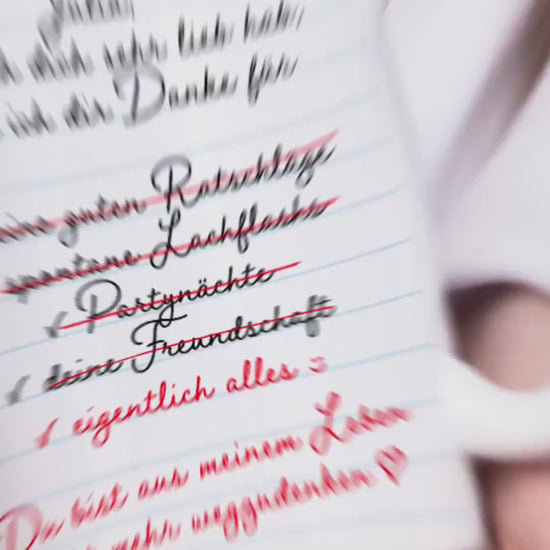 dich sehr lieb hab,
ich dir Danke für
guten Ratschläge
spontane Lachflashs
✓ Partynächte
✓ deine Freundschaft
✓ eigentlich alles =
Du bist aus meinem Leben
mehr wegzudenken ♡